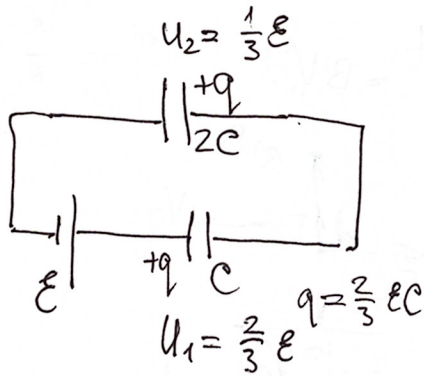 U₂ = 1/3 ℰ
+q
2C
ℰ
+q
C
q = 2/3 ℰC
U₁ = 2/3 ℰ